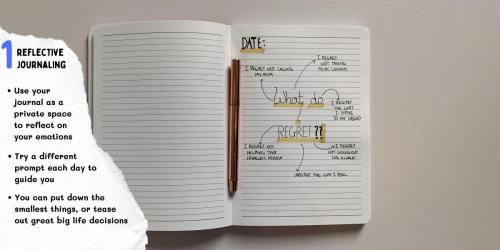 1 REFLECTIVE
JOURNALING
• Use your
journal as a
private space
to reflect on
your emotions
• Try a different
prompt each day to
guide you
• You can put down the
smallest things, or tease
out great big life decisions
DATE:
I REGRET
NOT TAKING
MUSIC LESSONS
I REGRET NOT CALLING
MY MOM
What do
I REGRET
THE WAY
I SPOKE
TO MY FRIEND
I
REGRET??
I REGRET NOT
HELPING THAT
HOMELESS PERSON
I REGRET
NOT GOING OUT
FOR A WALK
I REGRET THE WAY I FEEL